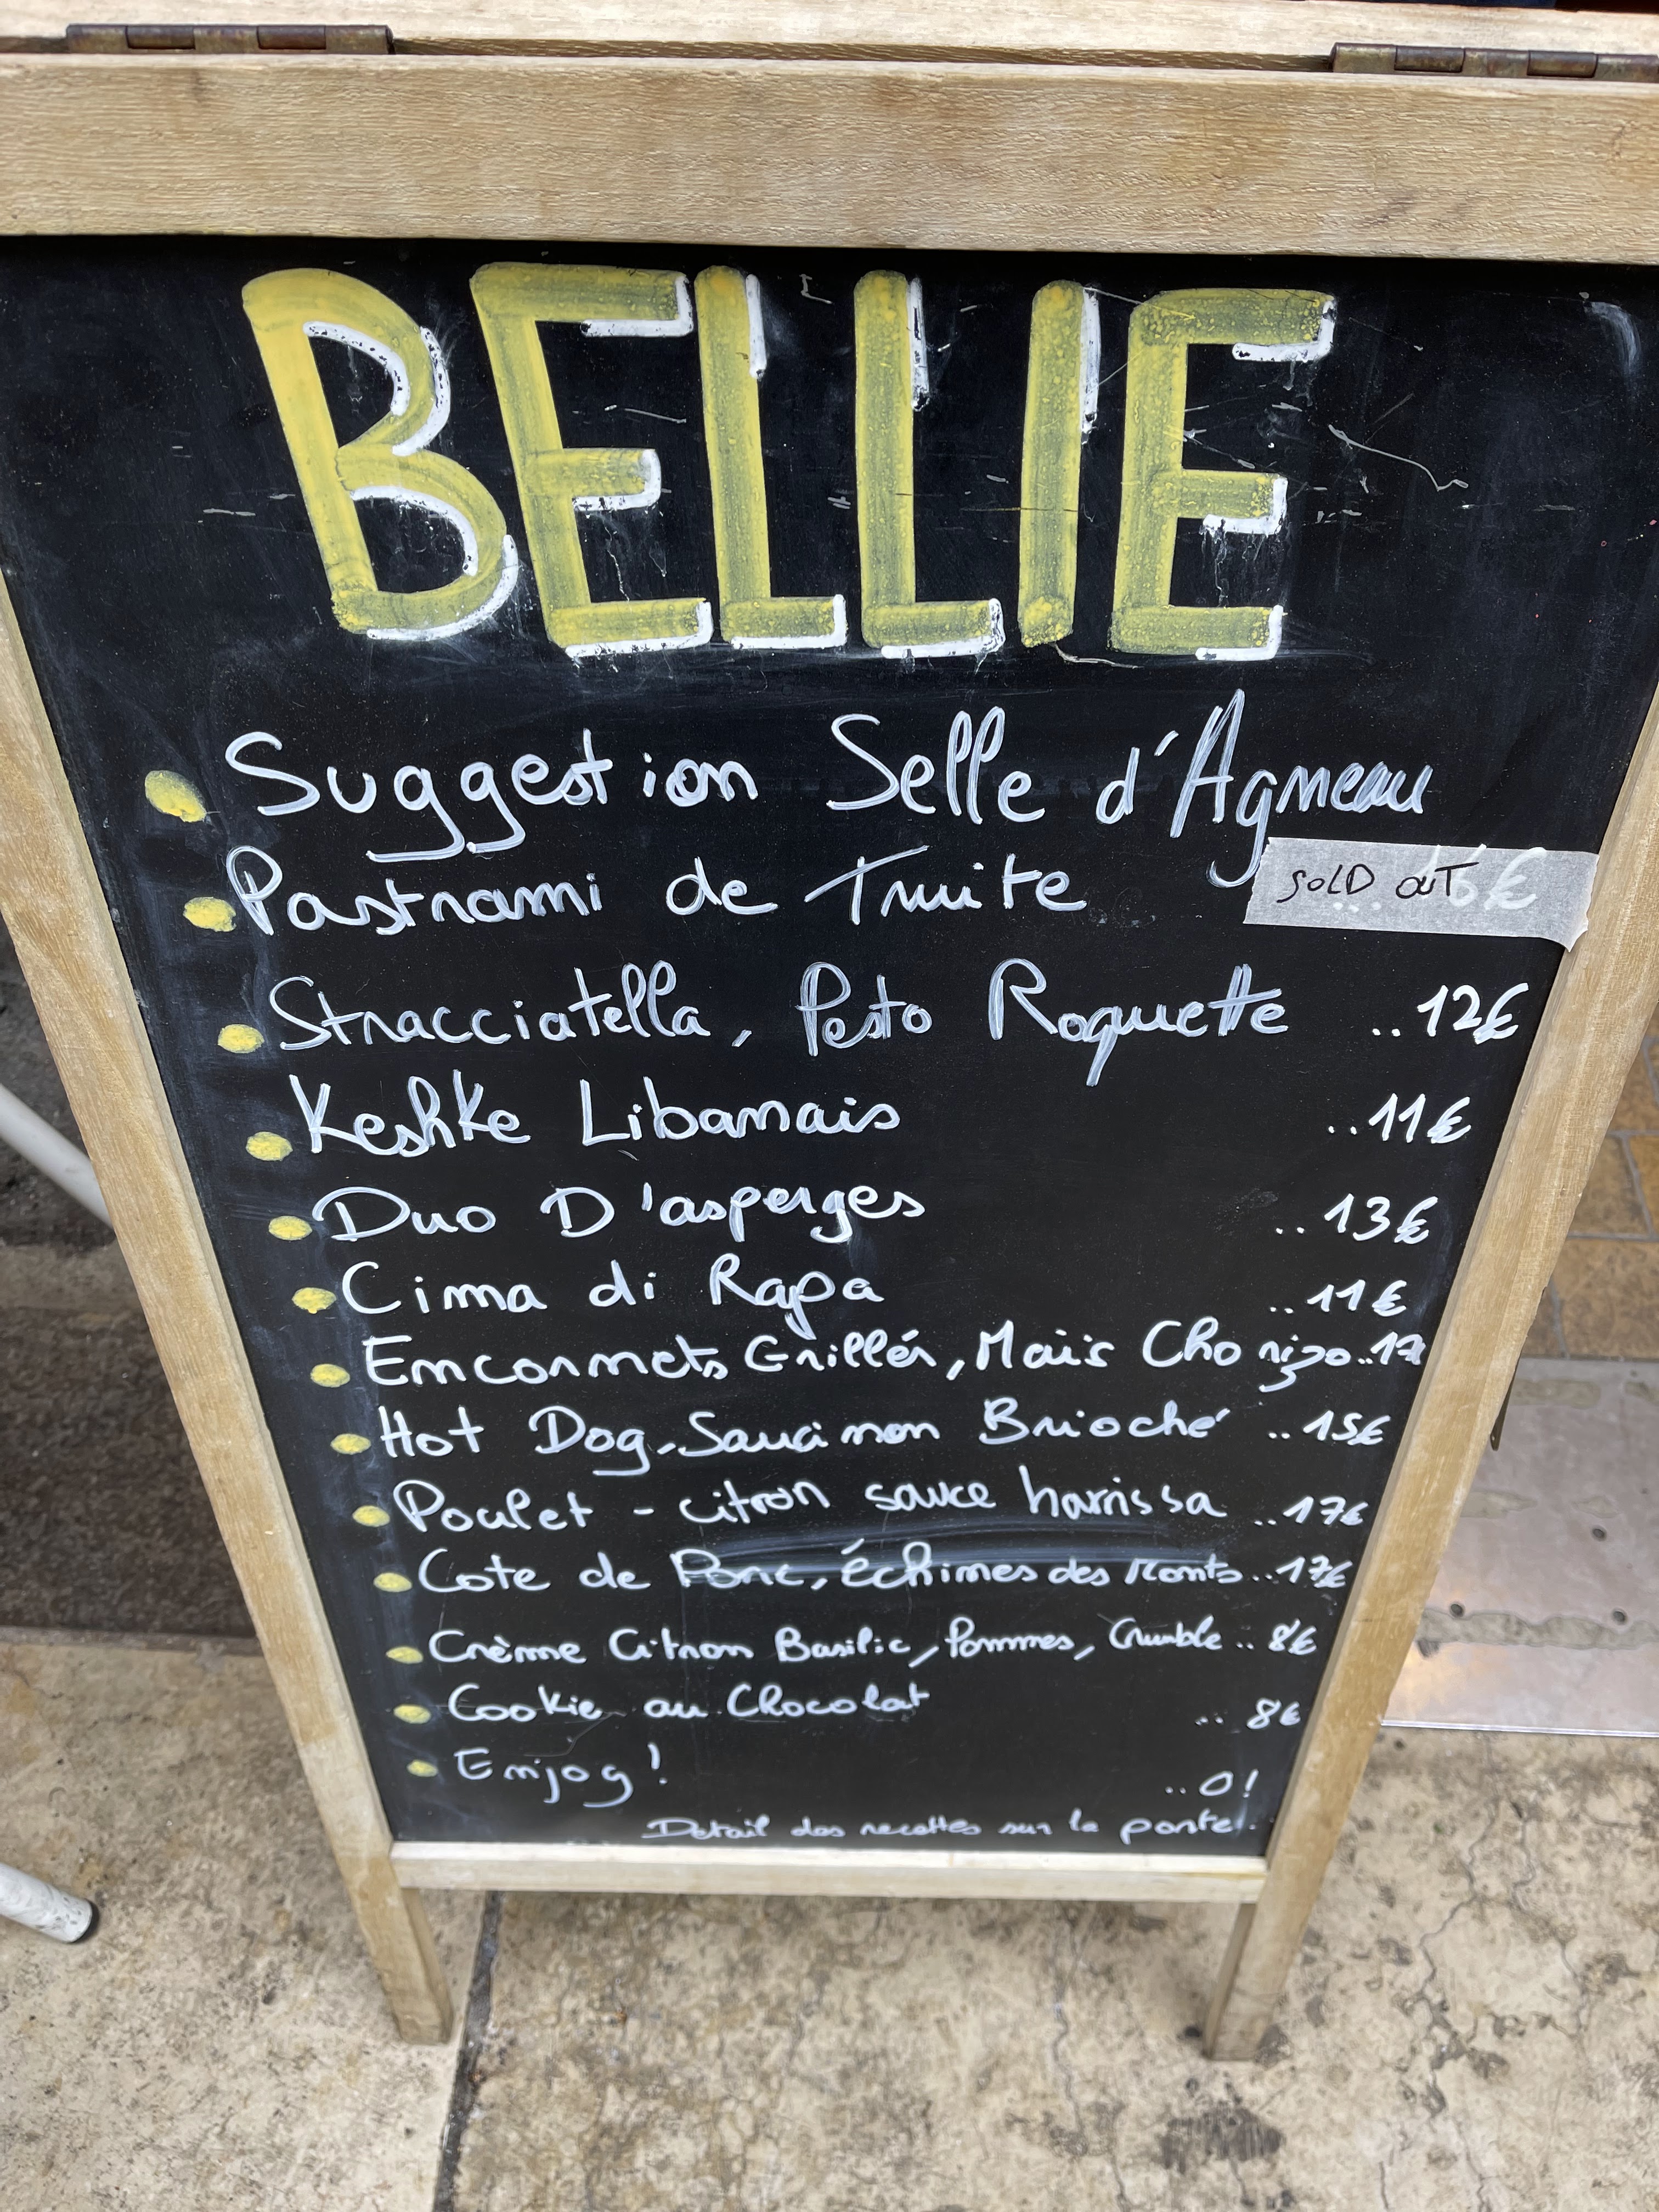 BELLIE
Suggestion Selle d'Agneau
Pastrami de Truite SOLD OUT 6€
Stracciatella, Pesto Roquette ..12€
Keshke Libanais ..11€
Duo D'asperges ..13€
Cima di Rapa ..11€
Encornets Grillés, Maïs Chorizo..17
Hot Dog, Saucisson Brioché ..15€
Poulet - citron sauce harrissa ..17€
Cote de Porc, Échines des Monts..17€
Crème Citron Basilic, Pommes, Crumble .. 8€
Cookie au Chocolat .. 8€
Enjoy! ..0!
Detail des recettes sur la porte!